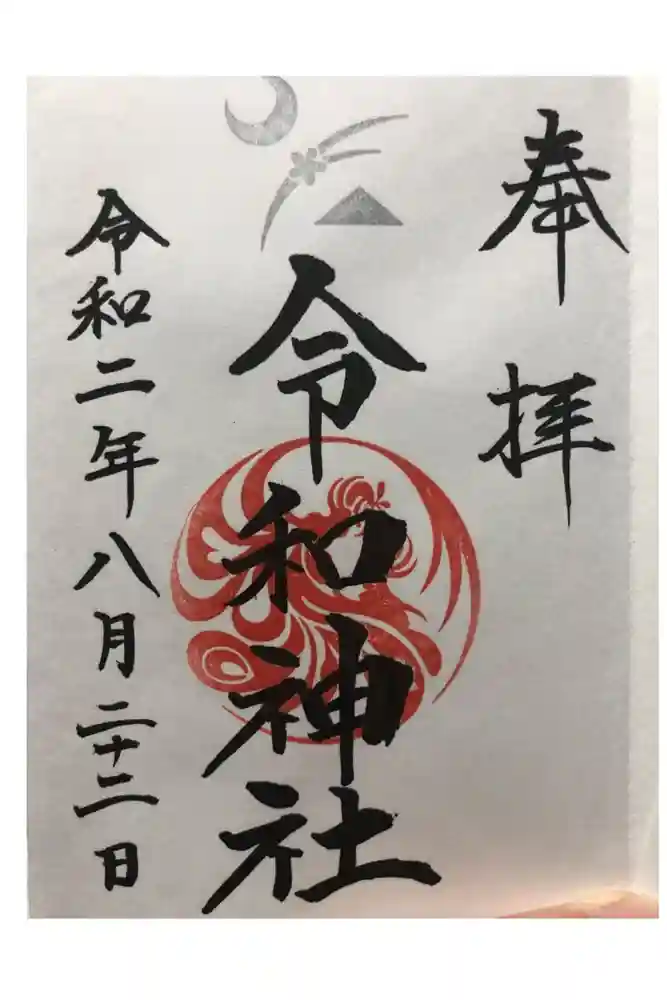 奉拝
令和神社
令和二年八月二十二日